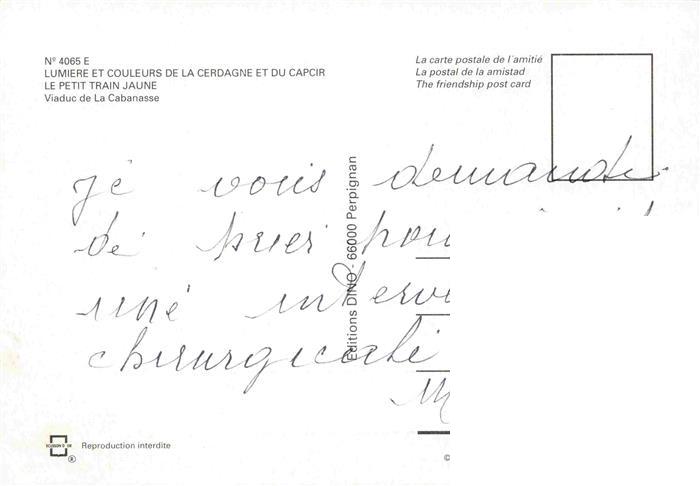 N° 4065 E
LUMIERE ET COULEURS DE LA CERDAGNE ET DU CAPCIR
LE PETIT TRAIN JAUNE
Viaduc de La Cabanasse
La carte postale de l'amitié
La postal de la amistad
The friendship post card
je vous demande
de prier pou
une interve
chirurgicale
M
Editions DINO - 66000 Perpignan
Reproduction interdite
®
©